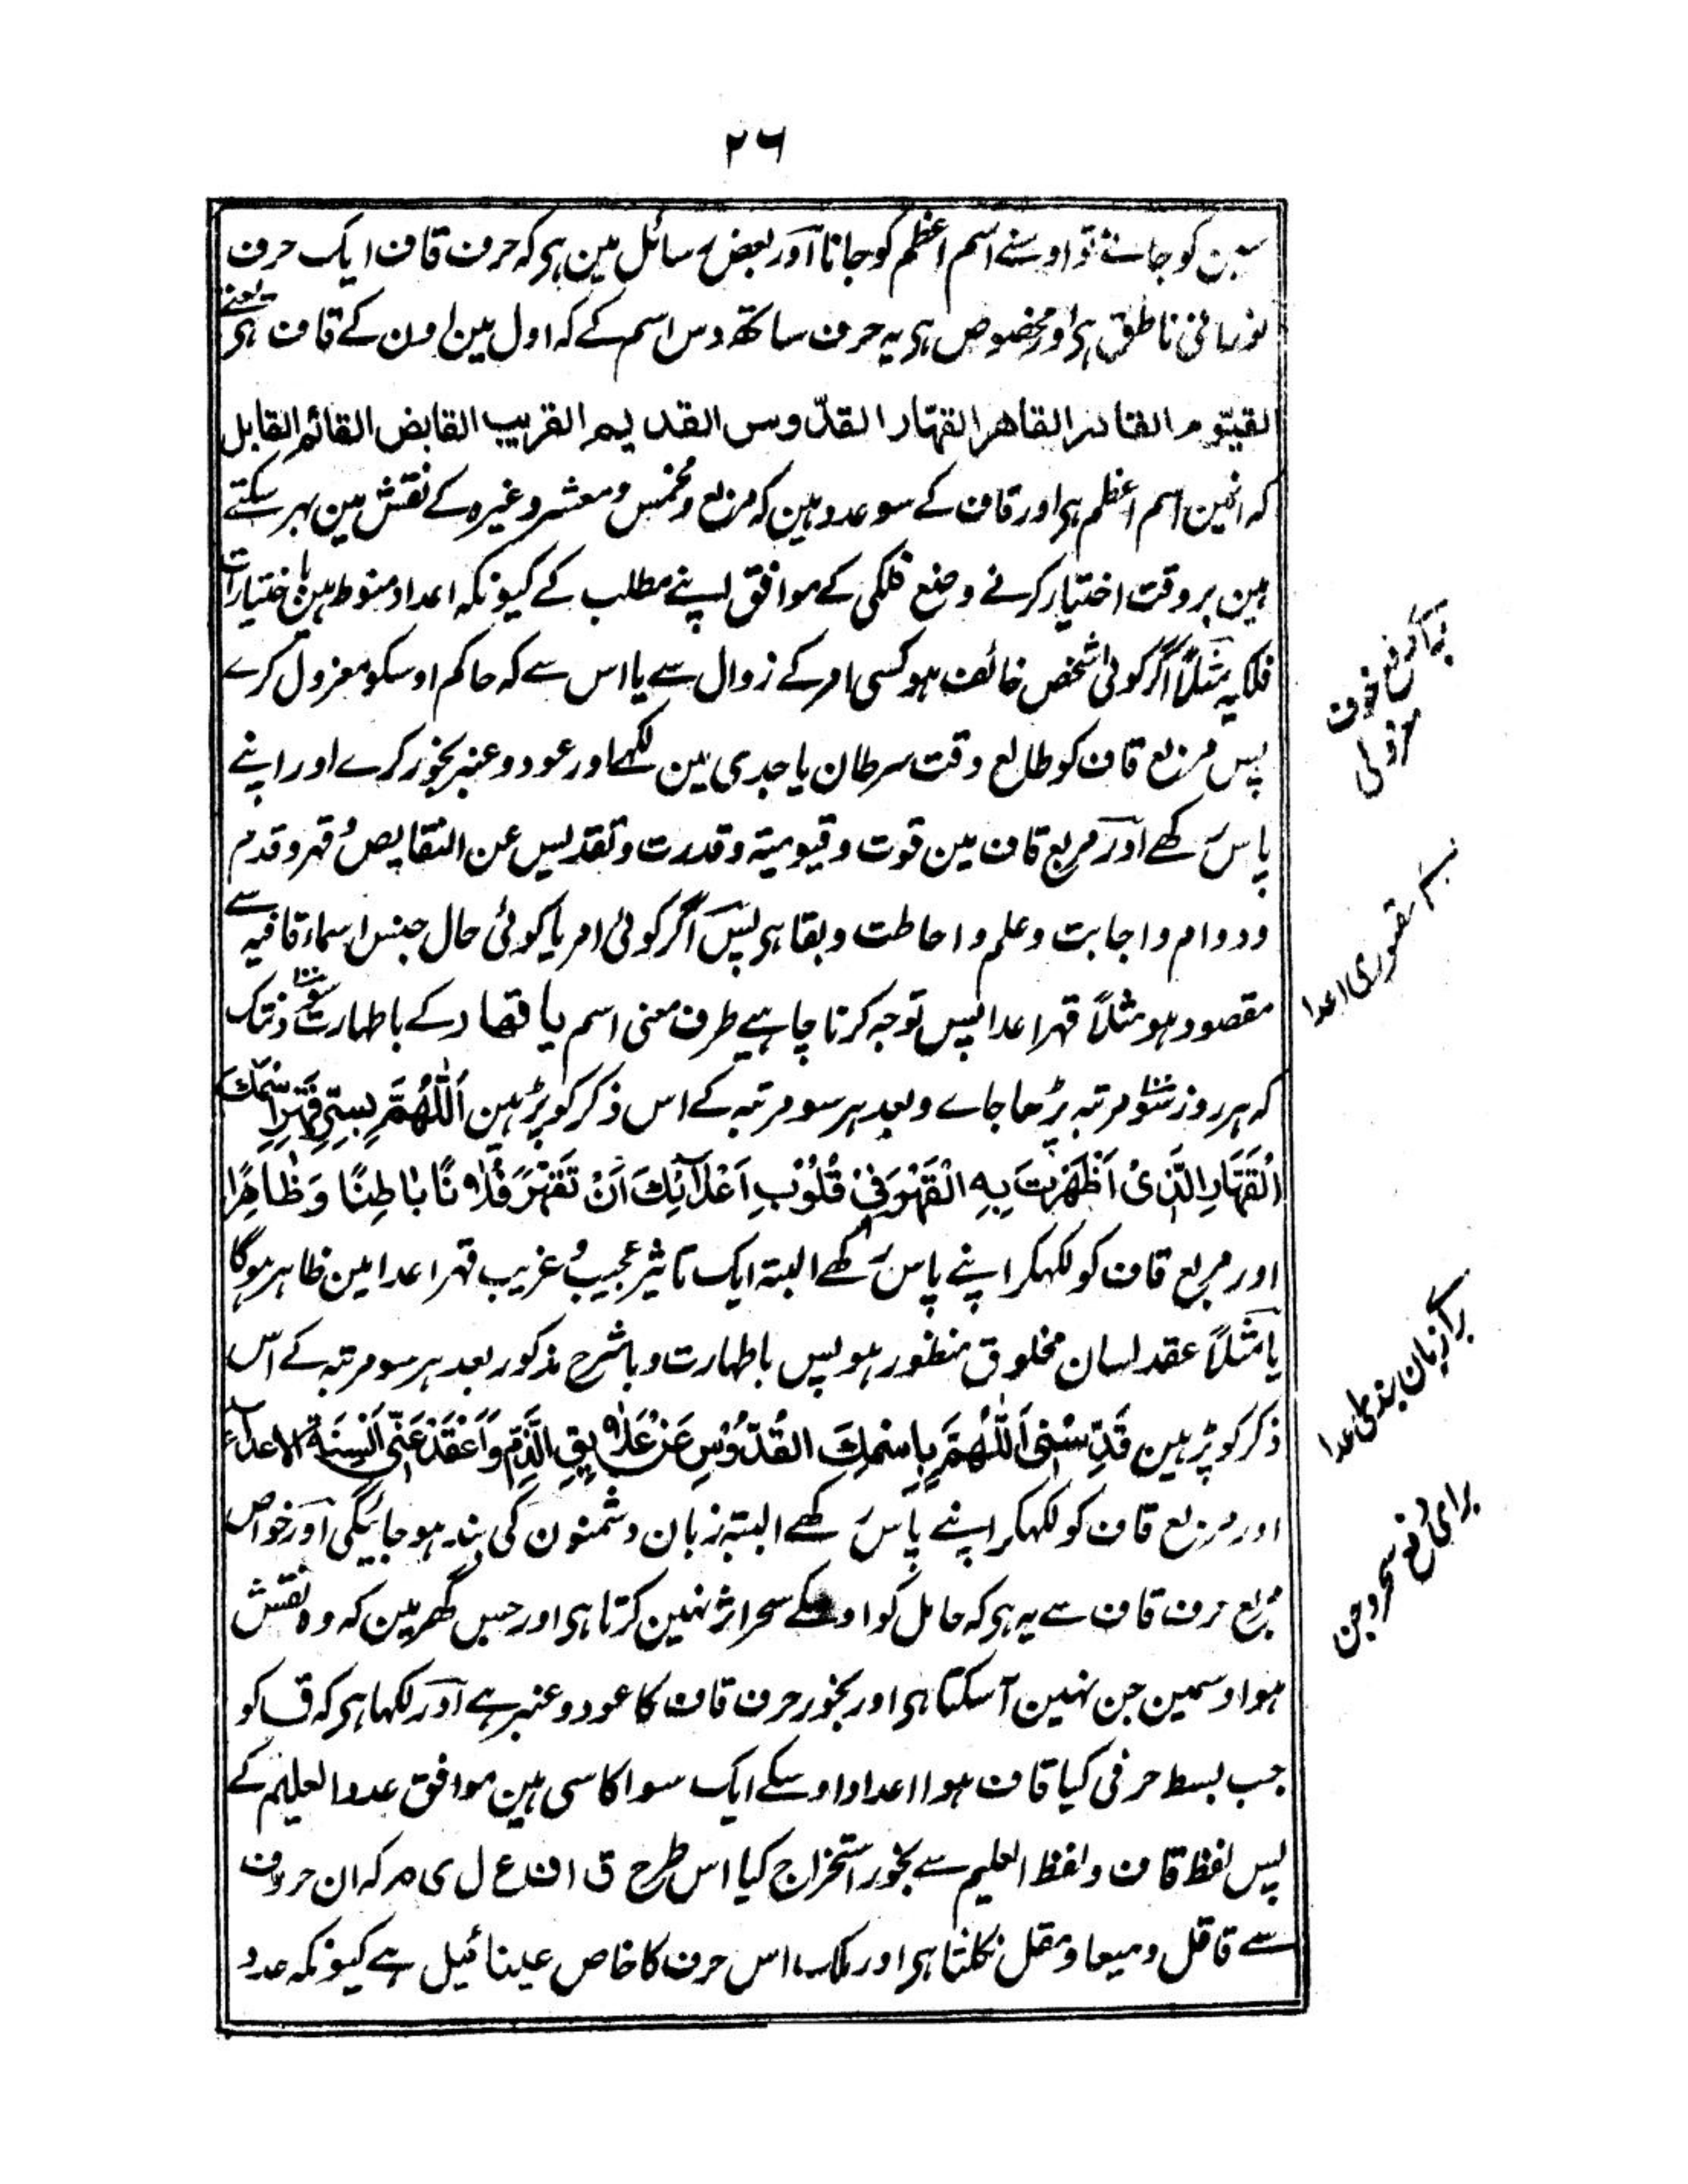 ۲۶
سین کو جانے تو اوسنے اسم اعظم کو جانا اور بعض رسائل مین ہی کہ حرف قاف ایک حرف
نورانی ناطق ہی اور مخصوص ہی یہ حرف ساتھ دس اسم کے کہ اول مین اون کے قاف ہی یعنے
القیّوم القادر القاهر القهّار القدّوس القدیم القریب القابض القائم القابل
کہ انمین اسم اعظم ہی اور قاف کے سو عدد ہین کہ مربع و مخمس و معشر وغیرہ کے نقش مین بہر سکتے
ہین بروقت اختیار کرنے وضع فلکی کے موافق اپنے مطلب کے کیونکہ اعداد منوط ہین باختیارات
فلکیہ مثلاً اگر کوئی شخص خائف ہو کسی امر کے زوال سے یا اس سے کہ حاکم اوسکو معزول کرے
پس مربع قاف کو طالع وقت سرطان یا جدی مین لکھے اور عود و عنبر بخور کرے اور اپنے
پاس رکھے اور مربع قاف مین قوت و قیومیتہ و قدرت و تقدیس عن النقایص و قہر و قدم
و دوام و اجابت و علم و احاطت و بقا ہی پس اگر کوئی امر یا کوئی حال جنس اسماء قافیہ سے
مقصود ہو مثلاً قہر اعدا پس توجہ کرنا چاہیے طرف معنی اسم یا قهار کے باطہارت سو۱۰۰ دنتک
کہ ہر روز سو۱۰۰ مرتبہ پڑھا جاے و بعد ہر سو مرتبہ کے اس ذکر کو پڑہین اَللّٰهُمَّ بِسِرِّ قَهْرِ اسْمِكَ
الْقَهَّارِ الَّذِیْ اَظْهَرْتَ بِهِ الْقَهْرَ فِیْ قُلُوْبِ اَعْدَآئِكَ اَنْ تَقْهَرَ فُلَانًا بَاطِنًا وَظَاهِرًا
اور مربع قاف کو لکھکر اپنے پاس رکھے البتہ ایک تاثیر عجیب و غریب قہر اعدا مین ظاہر ہوگا
یا مثلاً عقد لسان مخلوق منظور ہو پس باطہارت و باشرح مذکور بعد ہر سو مرتبہ کے اس
ذکر کو پڑہین قَدِّسْنِیْ اَللّٰهُمَّ بِاسْمِكَ الْقُدُّوْسِ عَنْ عَلَایِقِ الذَّمِّ وَاعْقَدْ عَنِّیْ اَلْسِنَةَ الاعدآء
اور مربع قاف کو لکھکر اپنے پاس رکھے البتہ زبان دشمنون کی بند ہو جائیگی اور خواص
مربع حرف قاف سے یہ ہی کہ حامل کو اوسکے سحر اثر نہین کرتا ہی اور جس گھر مین کہ وہ نقش
ہو اوسمین جن نہین آ سکتا ہی اور بخور حرف قاف کا عود و عنبر ہے اور لکھا ہی کہ ق کو
جب بسط حرفی کیا قاف ہوا اعداد اوسکے ایک سو اکاسی ہین موافق عدد العلیم کے
پس لفظ قاف و لفظ العلیم سے بخور استخراج کیا اس طرح ق ا ف ع ل ی م کہ ان حروف
سے قاقل و میعا و مقل نکلتا ہی اور ملک اس حرف کا خاص عینائیل ہے کیونکہ عدد
مقہوری اعدا
برائ زبان بندی اعدا
برای دفع سحر و جن